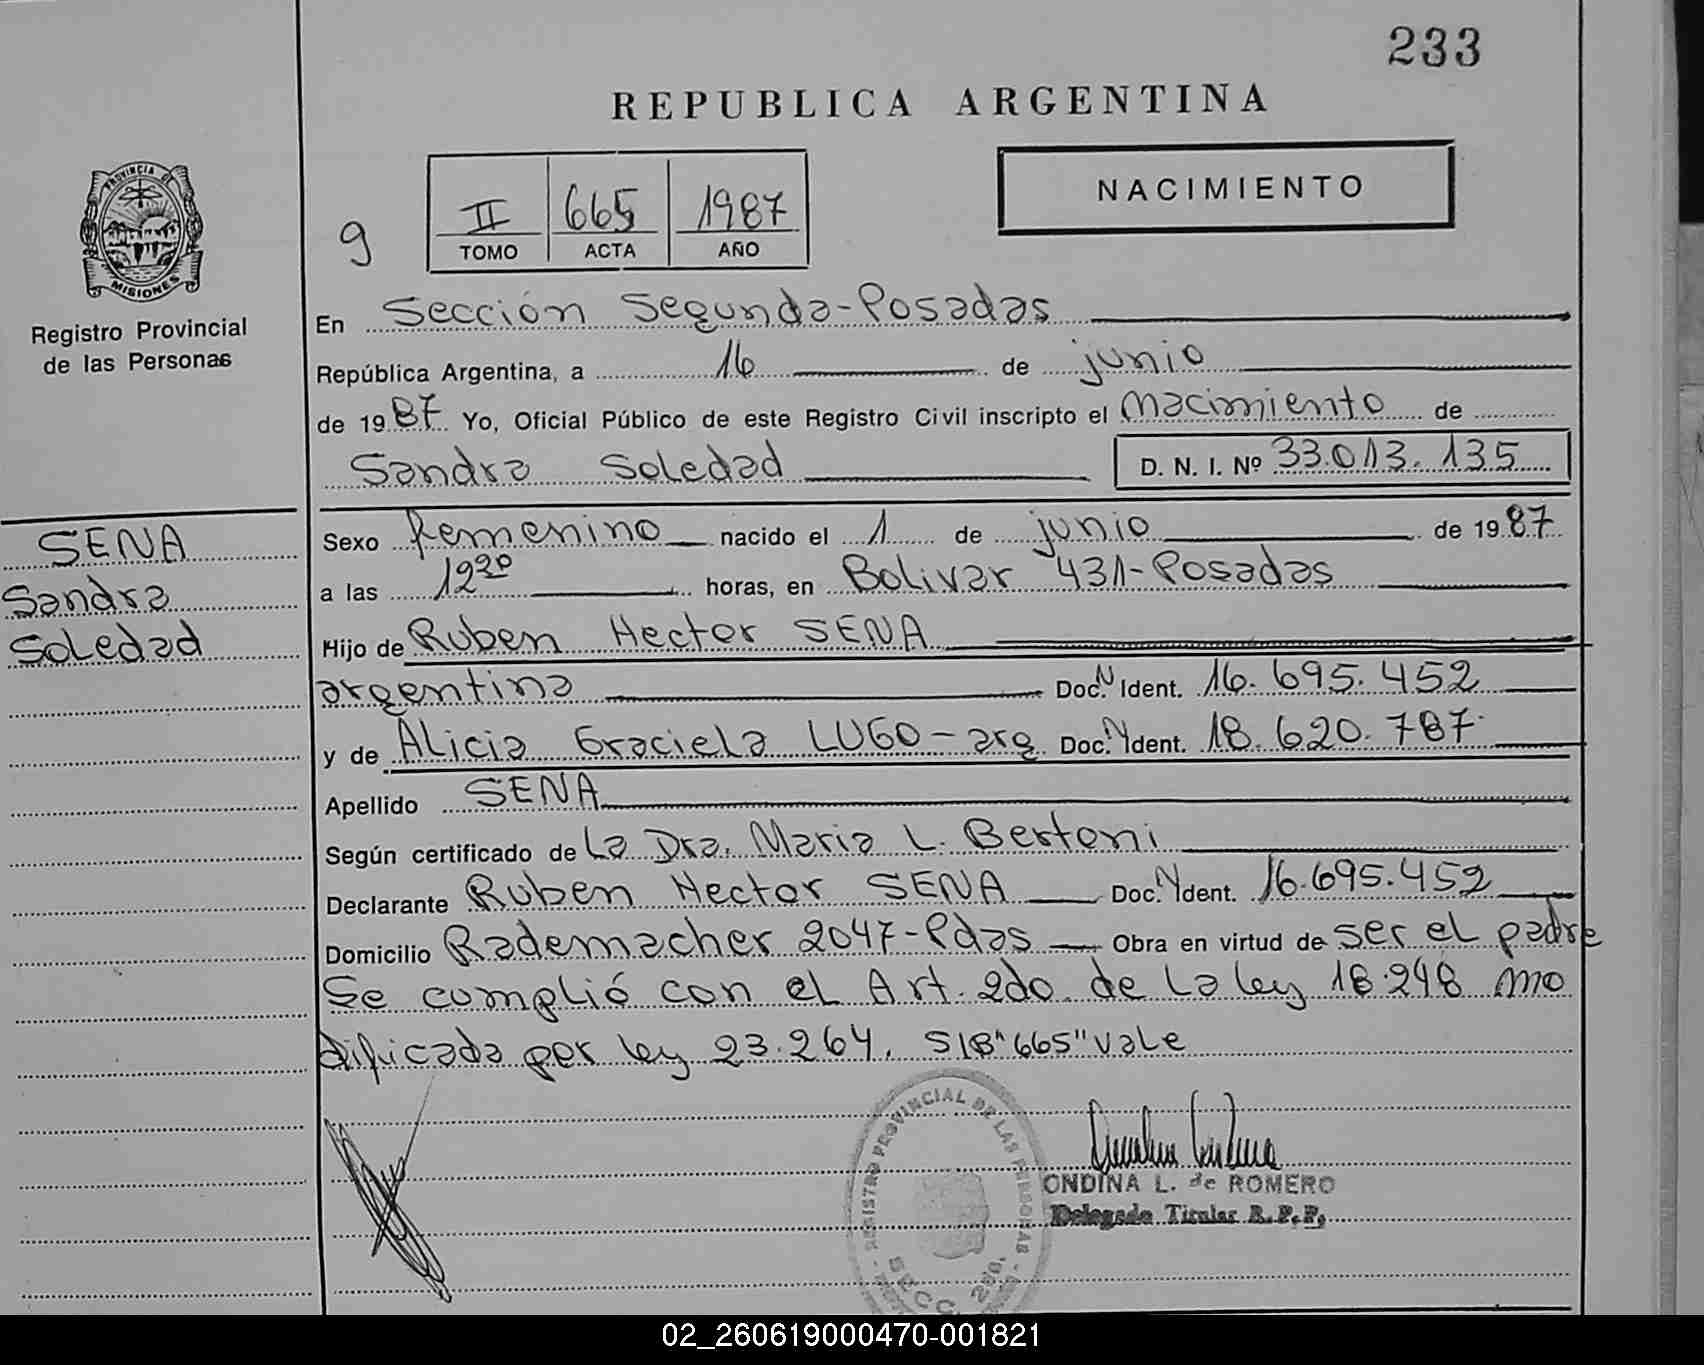 233
REPUBLICA ARGENTINA
PROVINCIA DE
MISIONES
Registro Provincial
de las Personas
9
II 665 1987
TOMO ACTA AÑO
NACIMIENTO
En Sección Segunda-Posadas
República Argentina, a 16 de junio
de 1987 Yo, Oficial Público de este Registro Civil inscripto el nacimiento de
Sandra Soledad D. N. I. Nº 33.013.135
SENA
Sandra
Soledad
Sexo femenino nacido el 1 de junio de 1987
a las 12 20 horas, en Bolivar 431-Posadas
Hijo de Ruben Hector SENA
argentina Doc. N Ident. 16.695.452
y de Alicia Graciela LUGO-arg Doc. N Ident. 18.620.787
Apellido SENA
Según certificado de La Dra. Maria L. Bertoni
Declarante Ruben Hector SENA Doc. N Ident. 16.695.452
Domicilio Rademacher 2047-Pdas Obra en virtud de ser el padre
Se cumplió con el Art. 2do. de la ley 18.248 mo
dificada por ley 23.264. S/B "665" vale
REGISTRO PROVINCIAL DE LAS PERSONAS
SECC. 2da.
ONDINA L. de ROMERO
Delegada Titular R.P.P.
02_260619000470-001821